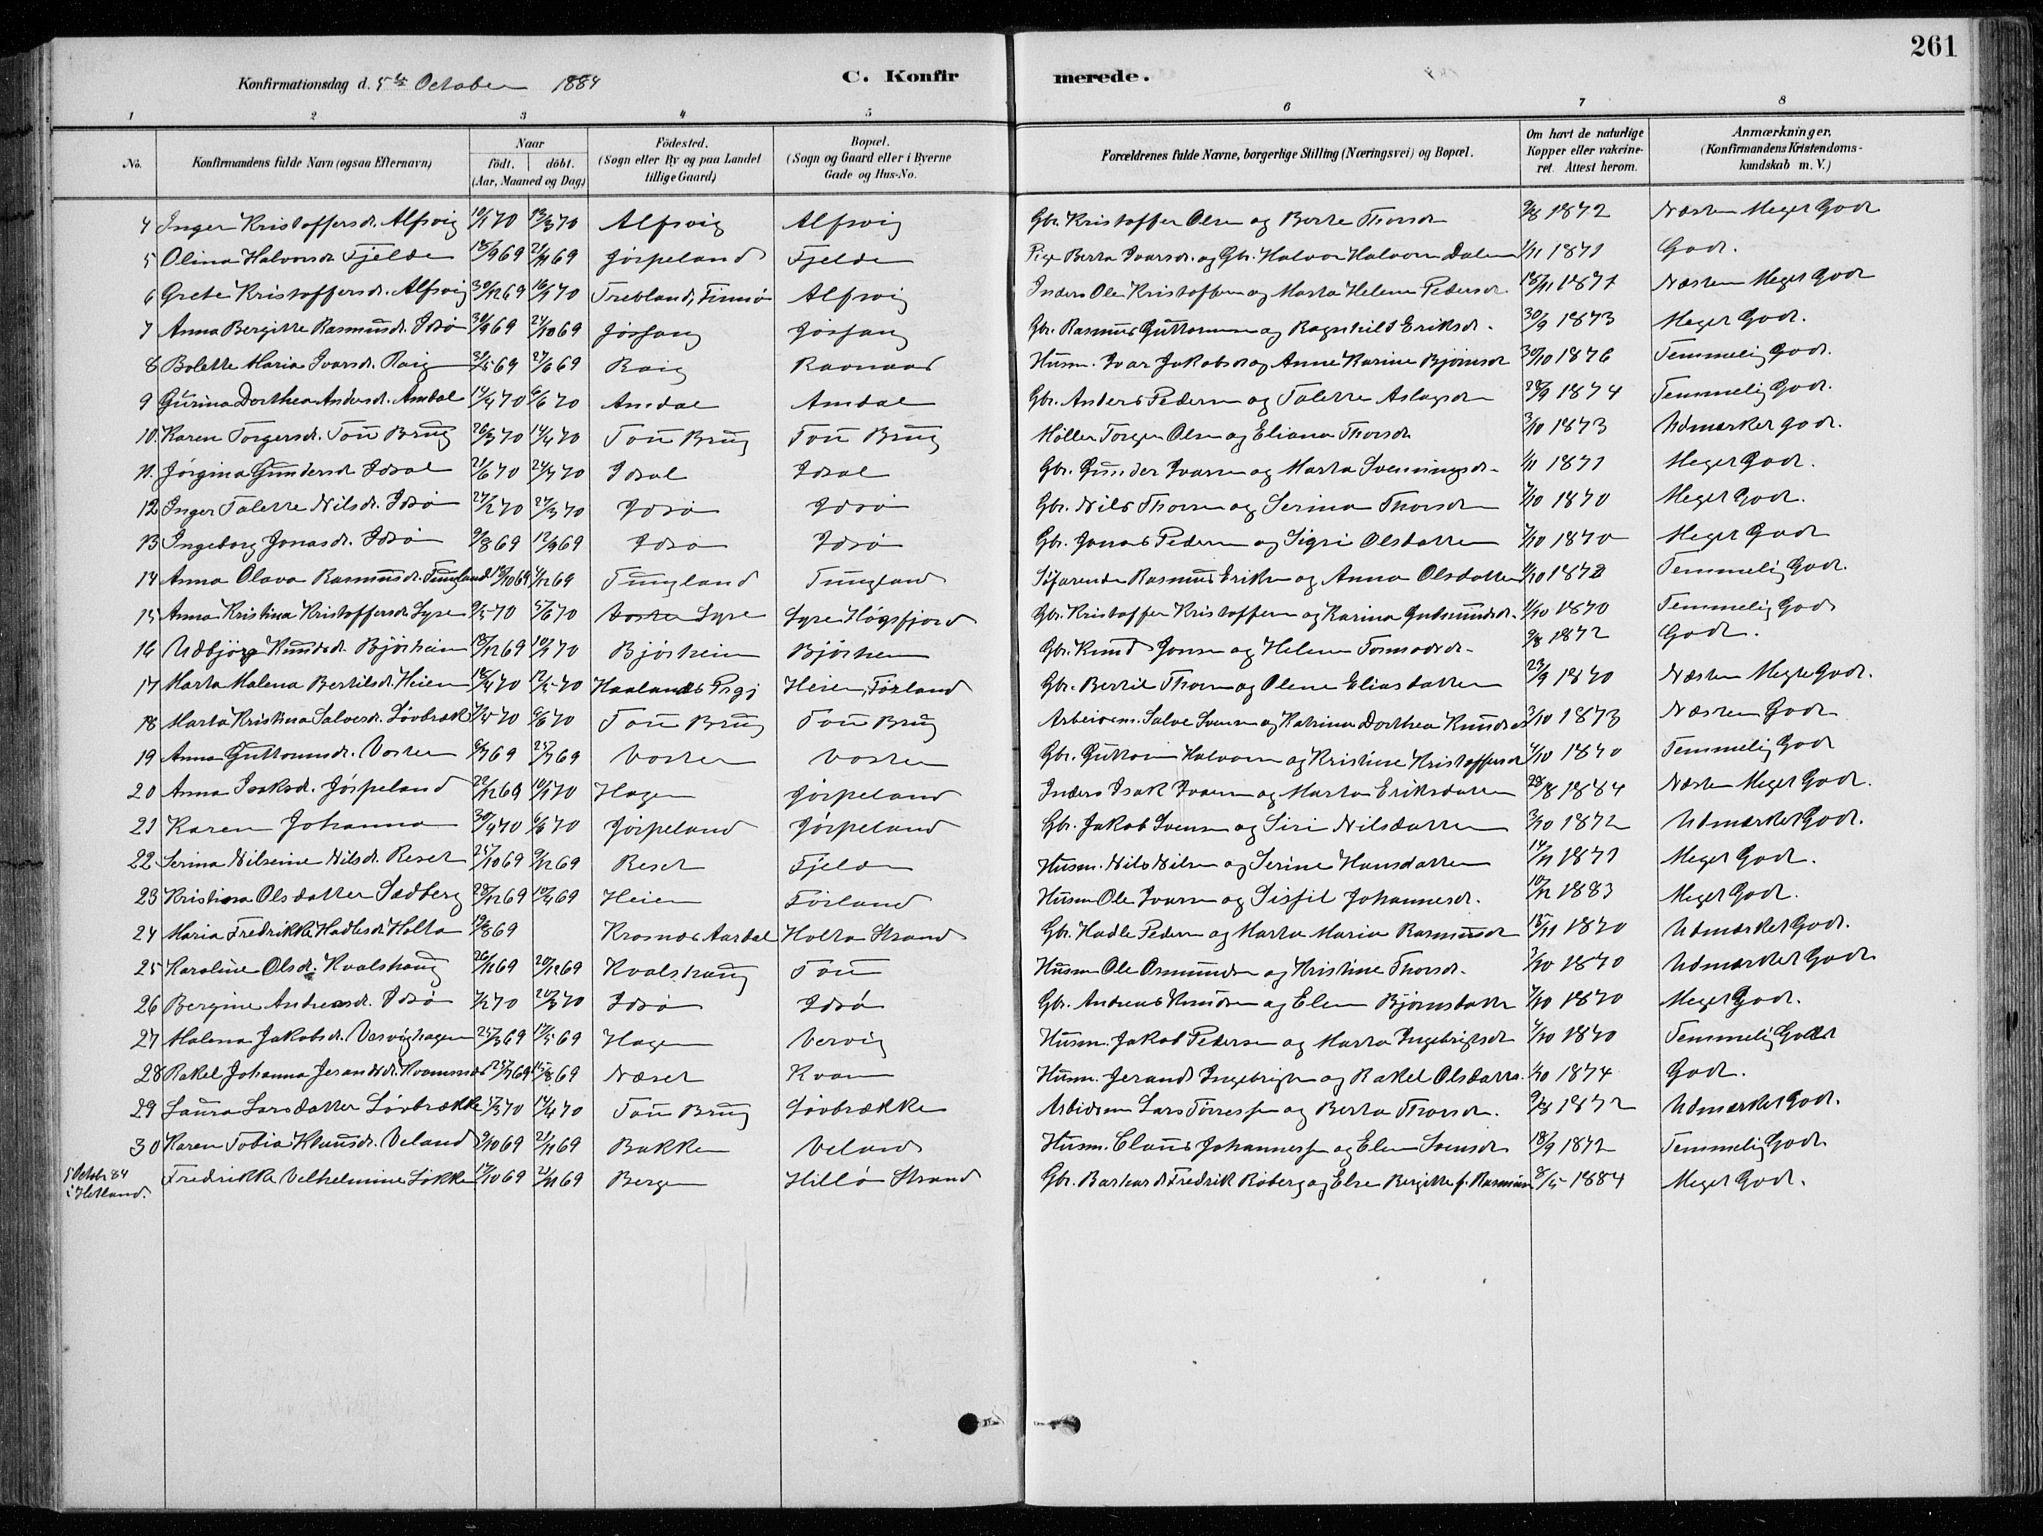 261
Konfirmationsdag d. 5te October 1884
C. Konfirmerede.
1 2 3 4 5 6 7 8
No.
Konfirmandens fulde Navn (ogsaa Efternavn)
Naar
födt. döbt.
(Aar, Maaned og Dag)
Födested.
(Sogn eller By og paa Landet tillige Gaard)
Bopæl.
(Sogn og Gaard eller i Byerne Gade og Hus-No.
Forældrenes fulde Navne, borgerlige Stilling (Næringsvei) og Bopæl.
Om havt de naturlige Kopper eller vakcineret. Attest herom.
Anmærkninger.
(Konfirmandens Kristendomskundskab m. V.)
4 Inger Kristoffersdr. Alfsvig 10/1 70 13/3 70 Alfsvig Alfsvig Gbr. Kristoffer Olsen og Berte Thorsdr 9/8 1872 Næsten Meget Godt
5 Olina Halvorsdr Fjelde 18/9 69 21/11 69 Jörpeland Fjelde Pige Berta Ivarsdr. og Gbr. Halvor Halvorsen Dalen 1/11 1871 Godt.
6 Grete Kristoffersdr. Alfsvig 30/12 69 16/1 70 Alfsvig Inders Ole Kristoffersen og Marta Helene Pedersdr 18/11 1871 Næsten Meget Godt
7 Anna Bergitte Rasmusdr. Idsö 30/9 69 24/10 69 Jössang Jössang Gbr. Rasmus Guttormsen og Ragnhild Eriksdr. 30/9 1873 Meget Godt.
8 Bolette Maria Ivarsdr. Raig 31/5 69 27/6 69 Raig Ravnaas Husm. Ivar Jakobsen og Anne Karine Björnsdr 30/10 1876 Temmelig Godt.
9 Gurina Dorthea Andersdr. Amdal 14/4 70 6/6 70 Amdal Amdal Gbr. Anders Pedersen og Talette Aslagsdr 28/9 1874 Temmelig Godt.
10. Karen Torgersdr. Tou Brug 26/3 70 14/4 70 Tou Brug Tou Brug Möller Torger Olsen og Eliana Thorsdr 3/10 1873 Udmærket godt.
11. Jörgina Gundersdr Idsal 21/6 70 24/7 70 Idsal Idsal Gbr. Gunder Ivarsen og Marta Sveningsdr. 1/11 1871 Meget Godt.
12 Inger Talette Nilsdr. Idsö 24/2 70 27/3 70 Idsö Idsö Gbr. Nils Thorsen og Serina Thorsdr 7/10 1870 Meget Godt.
13 Ingeborg Jonasdr. Idsö 9/8 69 12/9 69 Idsö Idsö Gbr. Jonas Pedersen og Sigri Olsdatter 7/10 1870 Meget Godt
14 Anna Olava Rasmusdr. Tungland 18/10 69 4/12 69 Tungland Tungland Söfarende Rasmus Eriksen og Anna Olsdatter 4/10 1872 Temmelig Godt.
15 Anna Kristina Kristoffersdr. Lyse 9/5 70 5/6 70 Voster Lyse Lyse Högsfjord Gbr. Kristoffer Kristoffersen og Karina Gudmundsdr. 1/10 1870 Temmelig Godt
16 Udbjörg Knudsdr. Björheim 18/12 69 10/1 70 Björheim Björheim Gbr. Knud Jonsen og Helene Tormodsdr. 9/8 1872 Godt.
17 Marta Malena Bertilsdr. Heien 18/4 70 12/5 70 Haaland Heien, Förland Gbr. Bertil Thorsen og Olene Eliasdatter 29/9 1870 Næsten Meget Godt.
18 Marta Kristina Salvesdr. Lövbræk 7/5 70 6/6 70 Tou Brug Tou Brug Arbeidsm. Salve Svensen og Katrina Dorthea Knudsdr 3/10 1873 Næsten Godt
19 Anna Guttormsdr. Voster 6/7 69 25/7 69 Voster Voster Gbr. Guttorm Halvorsen og Kristine Kristoffersdr 4/10 1870 Temmelig Godt
20 Anna Isaksdr. Jörpeland 22/12 69 10/1 70 Hagen Jörpeland Inders Isak Ivarsen og Marta Eriksdatter 28/8 1884 Næsten Meget Godt.
21 Karen Johanna 30/4 70 6/6 70 Jörpeland Jörpeland Gbr. Jakob Svensen og Siri Nilsdatter 3/10 1872 Udmærket Godt.
22 Serina Nilseine Nilsdr. Reset 25/10 69 9/12 69 Reset Fjelde Husm. Nils Nilsen og Serine Hansdatter 14/11 1871 Meget Godt.
23 Kristina Olsdatter Sadberg 28/12 69 10/4 69 Heien Förland Husm Ole Ivarsen og Sissil Johannesdr. 10/12 1883 Meget Godt.
24 Maria Fredrikke Hadlesdr Holta 19/8 69 Krosnes Aardal Holta Strand Gbr. Hadle Pedersen og Marta Maria Rasmusdr 15/11 1870 Udmærket Godt.
25 Karoline Olsdr. Kvalshaug 26/11 69 20/12 69 Kvalshaug Tou Husm Ole Osmundsen og Kristine Thorsdr. 7/10 1870 Udmærket Godt
26 Bergine Andreasdr. Idsö 7/2 70 20/3 70 Idsö Idsö Gbr. Andreas Knudsen og Elen Björnsdatter 7/10 1870 Meget Godt.
27 Malena Jakobsdr. Vervighagen 25/3 69 17/5 69 Hagen Vervig Husm. Jakob Pedersen og Marta Ingebrigtsdr 4/10 1870 Temmelig Godt
28 Rakel Johanna Jerandsdr. Kvamsnes 25/7 69 15/8 69 Næset Kvam Husm. Jerand Ingebrigtsen og Rakel Olsdatter. 1/10 1874 Godt.
29 Laura Larsdatter Lövbrække 5/3 70 14/4 70 Tou Brug Lövbrække Arbeidsm Lars Törressen og Berta Thorsdr. 9/8 1872 Udmærket Godt.
30 Karen Tobia Klausdr. Veland 9/10 69 21/11 69 Bakken Veland Husm. Claus Johannessen og Elen Svensdr 18/9 1872 Temmelig Godt
5 Octobr. 84 i Hetland. Fredrikke Vilhelmine Lökke 17/10 69 21/11 69 Bergen Hillö Strand Gbr. Fredrik Roberg og Else Bergitte f. Rasmussen 8/5 1884 Meget Godt.